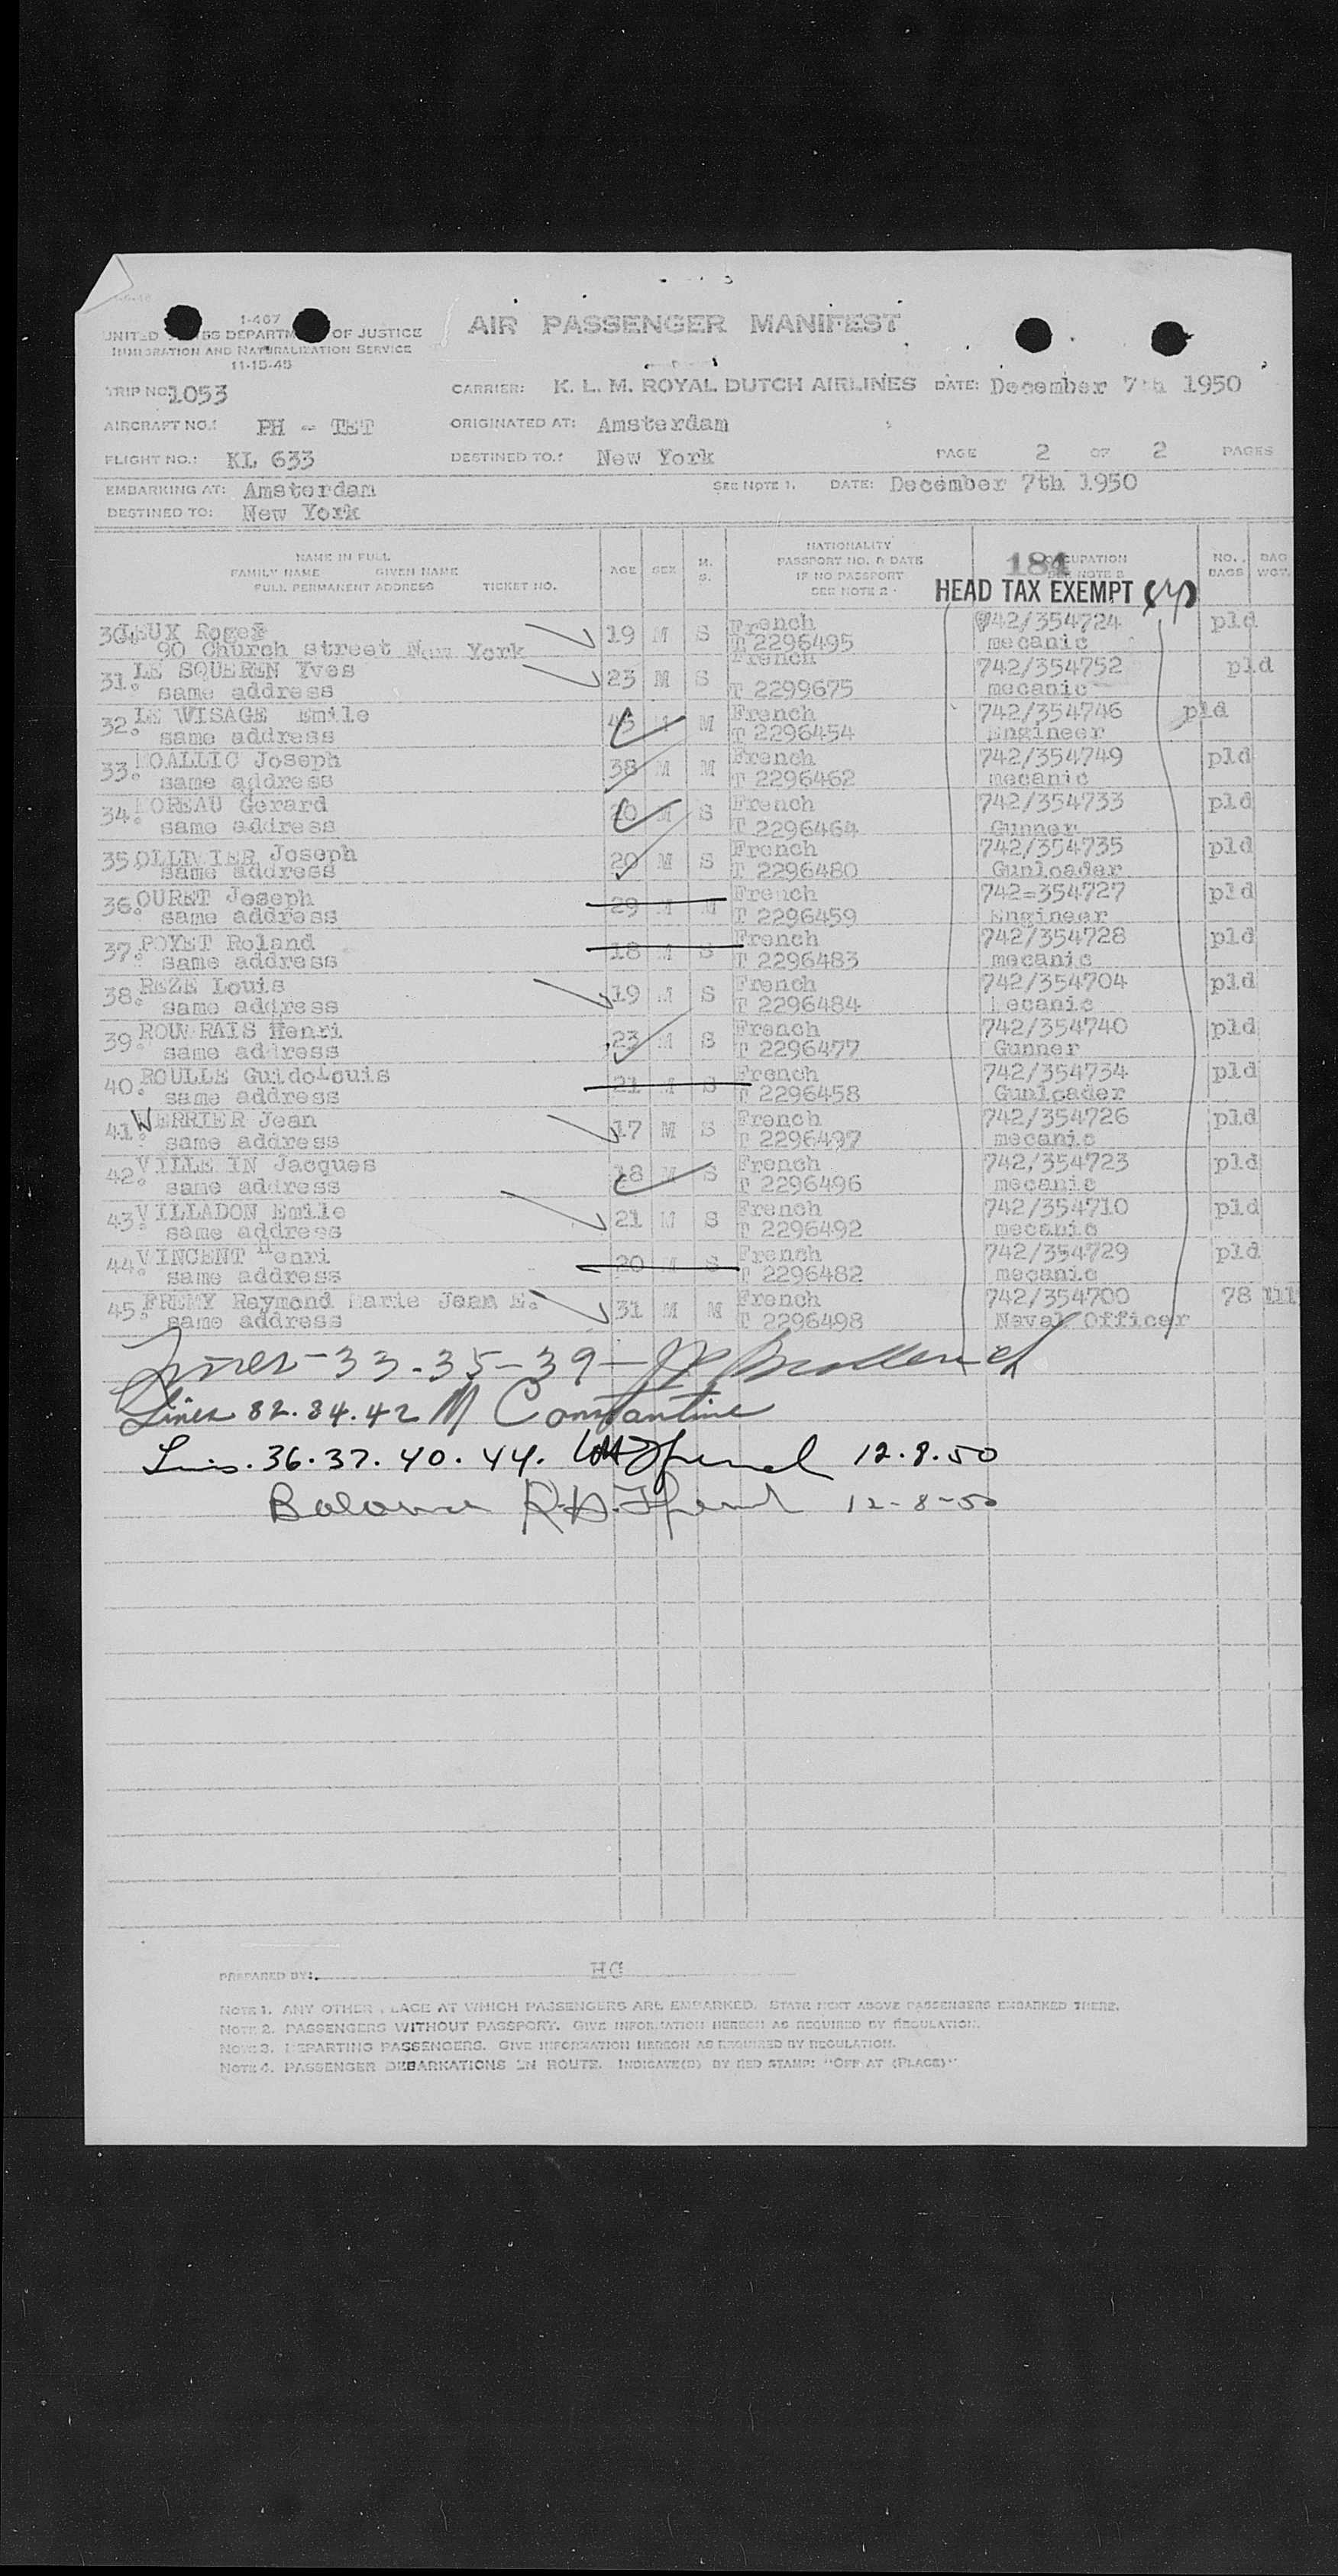 1-467
UNITED DEPARTM OF JUSTICE
IMMIGRATION AND NATURALIZATION SERVICE
11-15-45
AIR PASSENGER MANIFEST
TRIP NO: 1053 CARRIER: K. L. M. ROYAL DUTCH AIRLINES DATE: December 7th 1950
AIRCRAFT NO.: PH - TET ORIGINATED AT: Amsterdam
FLIGHT NO.: KL 633 DESTINED TO.: New York PAGE 2 OF 2 PAGES
EMBARKING AT: Amsterdam SEE NOTE 1. DATE: December 7th 1950
DESTINED TO: New York
NAME IN FULL
FAMILY NAME GIVEN NAME
FULL PERMANENT ADDRESS TICKET NO.
AGE SEX M. S.
NATIONALITY
PASSPORT NO. & DATE
IF NO PASSPORT
SEE NOTE 2
184 OCCUPATION
HEAD TAX EXEMPT
NO. BAGS BAG WGT.
30. LEUX Roger 19 M S French 742/354724 pld
90 Church street New York T 2296495 mecanic
31. LE SQUEREN Yves 23 M S French 742/354752 pld
same address T 2299675 mecanic
32. LE WISAGE Emile M M French 742/354746 pld
same address T 2296454 Engineer
33. MOALLIC Joseph 38 M M French 742/354749 pld
same address T 2296462 mecanic
34. MOREAU Gerard 20 M S French 742/354733 pld
same address T 2296464 Gunner
35. OLLIVIER Joseph 20 M S French 742/354735 pld
same address T 2296480 Gunloader
36. OURET Joseph 29 M M French 742=354727 pld
same address T 2296459 Engineer
37. POYET Roland 18 M S French 742/354728 pld
same address T 2296483 mecanic
38. REZE Louis 19 M S French 742/354704 pld
same address T 2296484 Mecanic
39. ROUXRAIS Henri 23 M S French 742/354740 pld
same address T 2296477 Gunner
40. ROULLE GuidoLouis 21 M S French 742/354734 pld
same address T 2296458 Gunloader
41. WERRIER Jean 17 M S French 742/354726 pld
same address T 2296497 mecanic
42. VILLE IN Jacques 18 M S French 742/354723 pld
same address T 2296496 mecanic
43. VILLADON Emile 21 M S French 742/354710 pld
same address T 2296492 mecanic
44. VINCENT Henri 20 M S French 742/354729 pld
same address T 2296482 mecanic
45. FREMY Raymond Marie Jean E. 31 M M French 742/354700 78 111
same address T 2296498 Naval Officer
Lines-33-35-39-
Lines 32.34.42 M Constantine
Lines.36.37.40.44. 12.8.50
Balance 12-8-50
PREPARED BY: HG
NOTE 1. ANY OTHER PLACE AT WHICH PASSENGERS ARE EMBARKED. STATE NEXT ABOVE PASSENGERS EMBARKED THERE.
NOTE 2. PASSENGERS WITHOUT PASSPORT. GIVE INFORMATION HEREON AS REQUIRED BY REGULATION.
NOTE 3. DEPARTING PASSENGERS. GIVE INFORMATION HEREON AS REQUIRED BY REGULATION.
NOTE 4. PASSENGER DEBARKATIONS EN ROUTE. INDICATE(D) BY RED STAMP: "OFF AT (PLACE)"